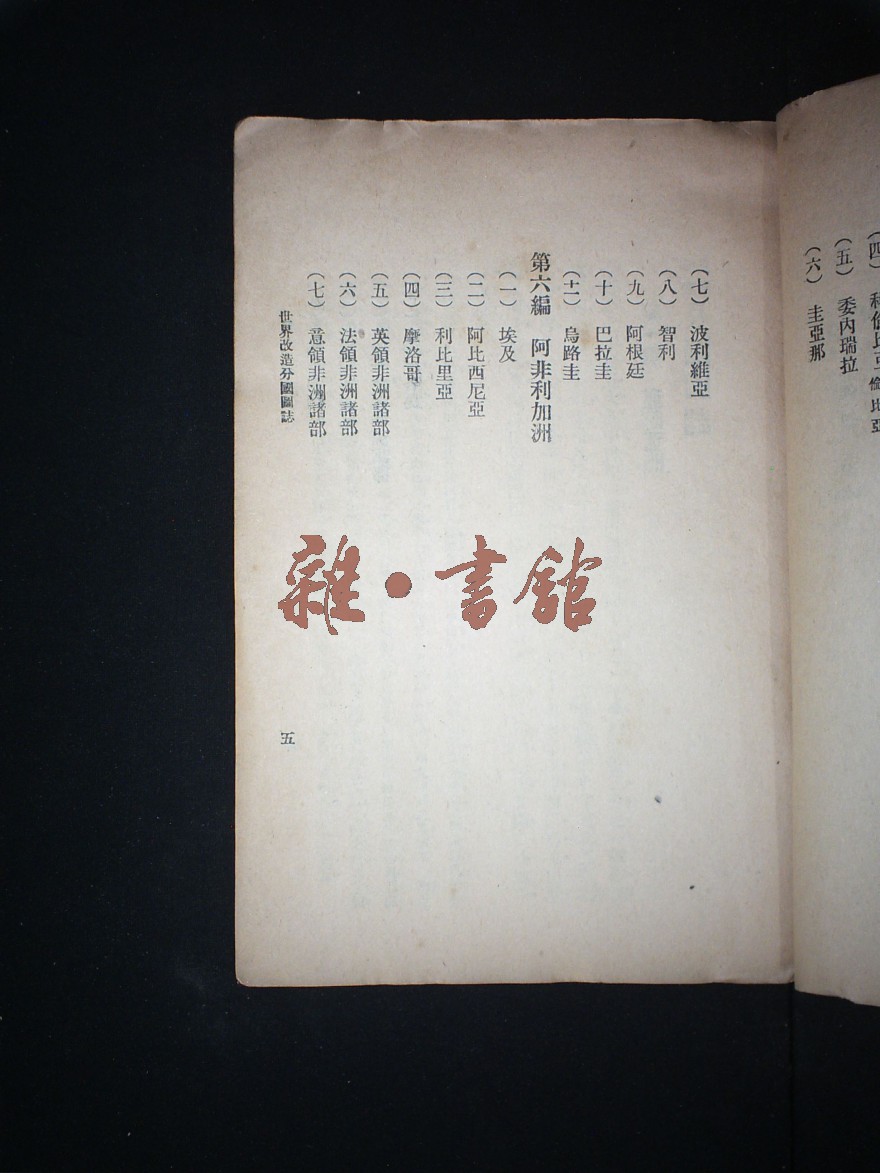 （五） 委內瑞拉
（六） 圭亞那
（七） 波利維亞
（八） 智利
（九） 阿根廷
（十） 巴拉圭
（十一） 烏路圭
第六編 阿非利加洲
（一） 埃及
（二） 阿比西尼亞
（三） 利比里亞
（四） 摩洛哥
（五） 英領非洲諸部
（六） 法領非洲諸部
（七） 意領非洲諸部
世界改造分國圖誌
五
雜·書館